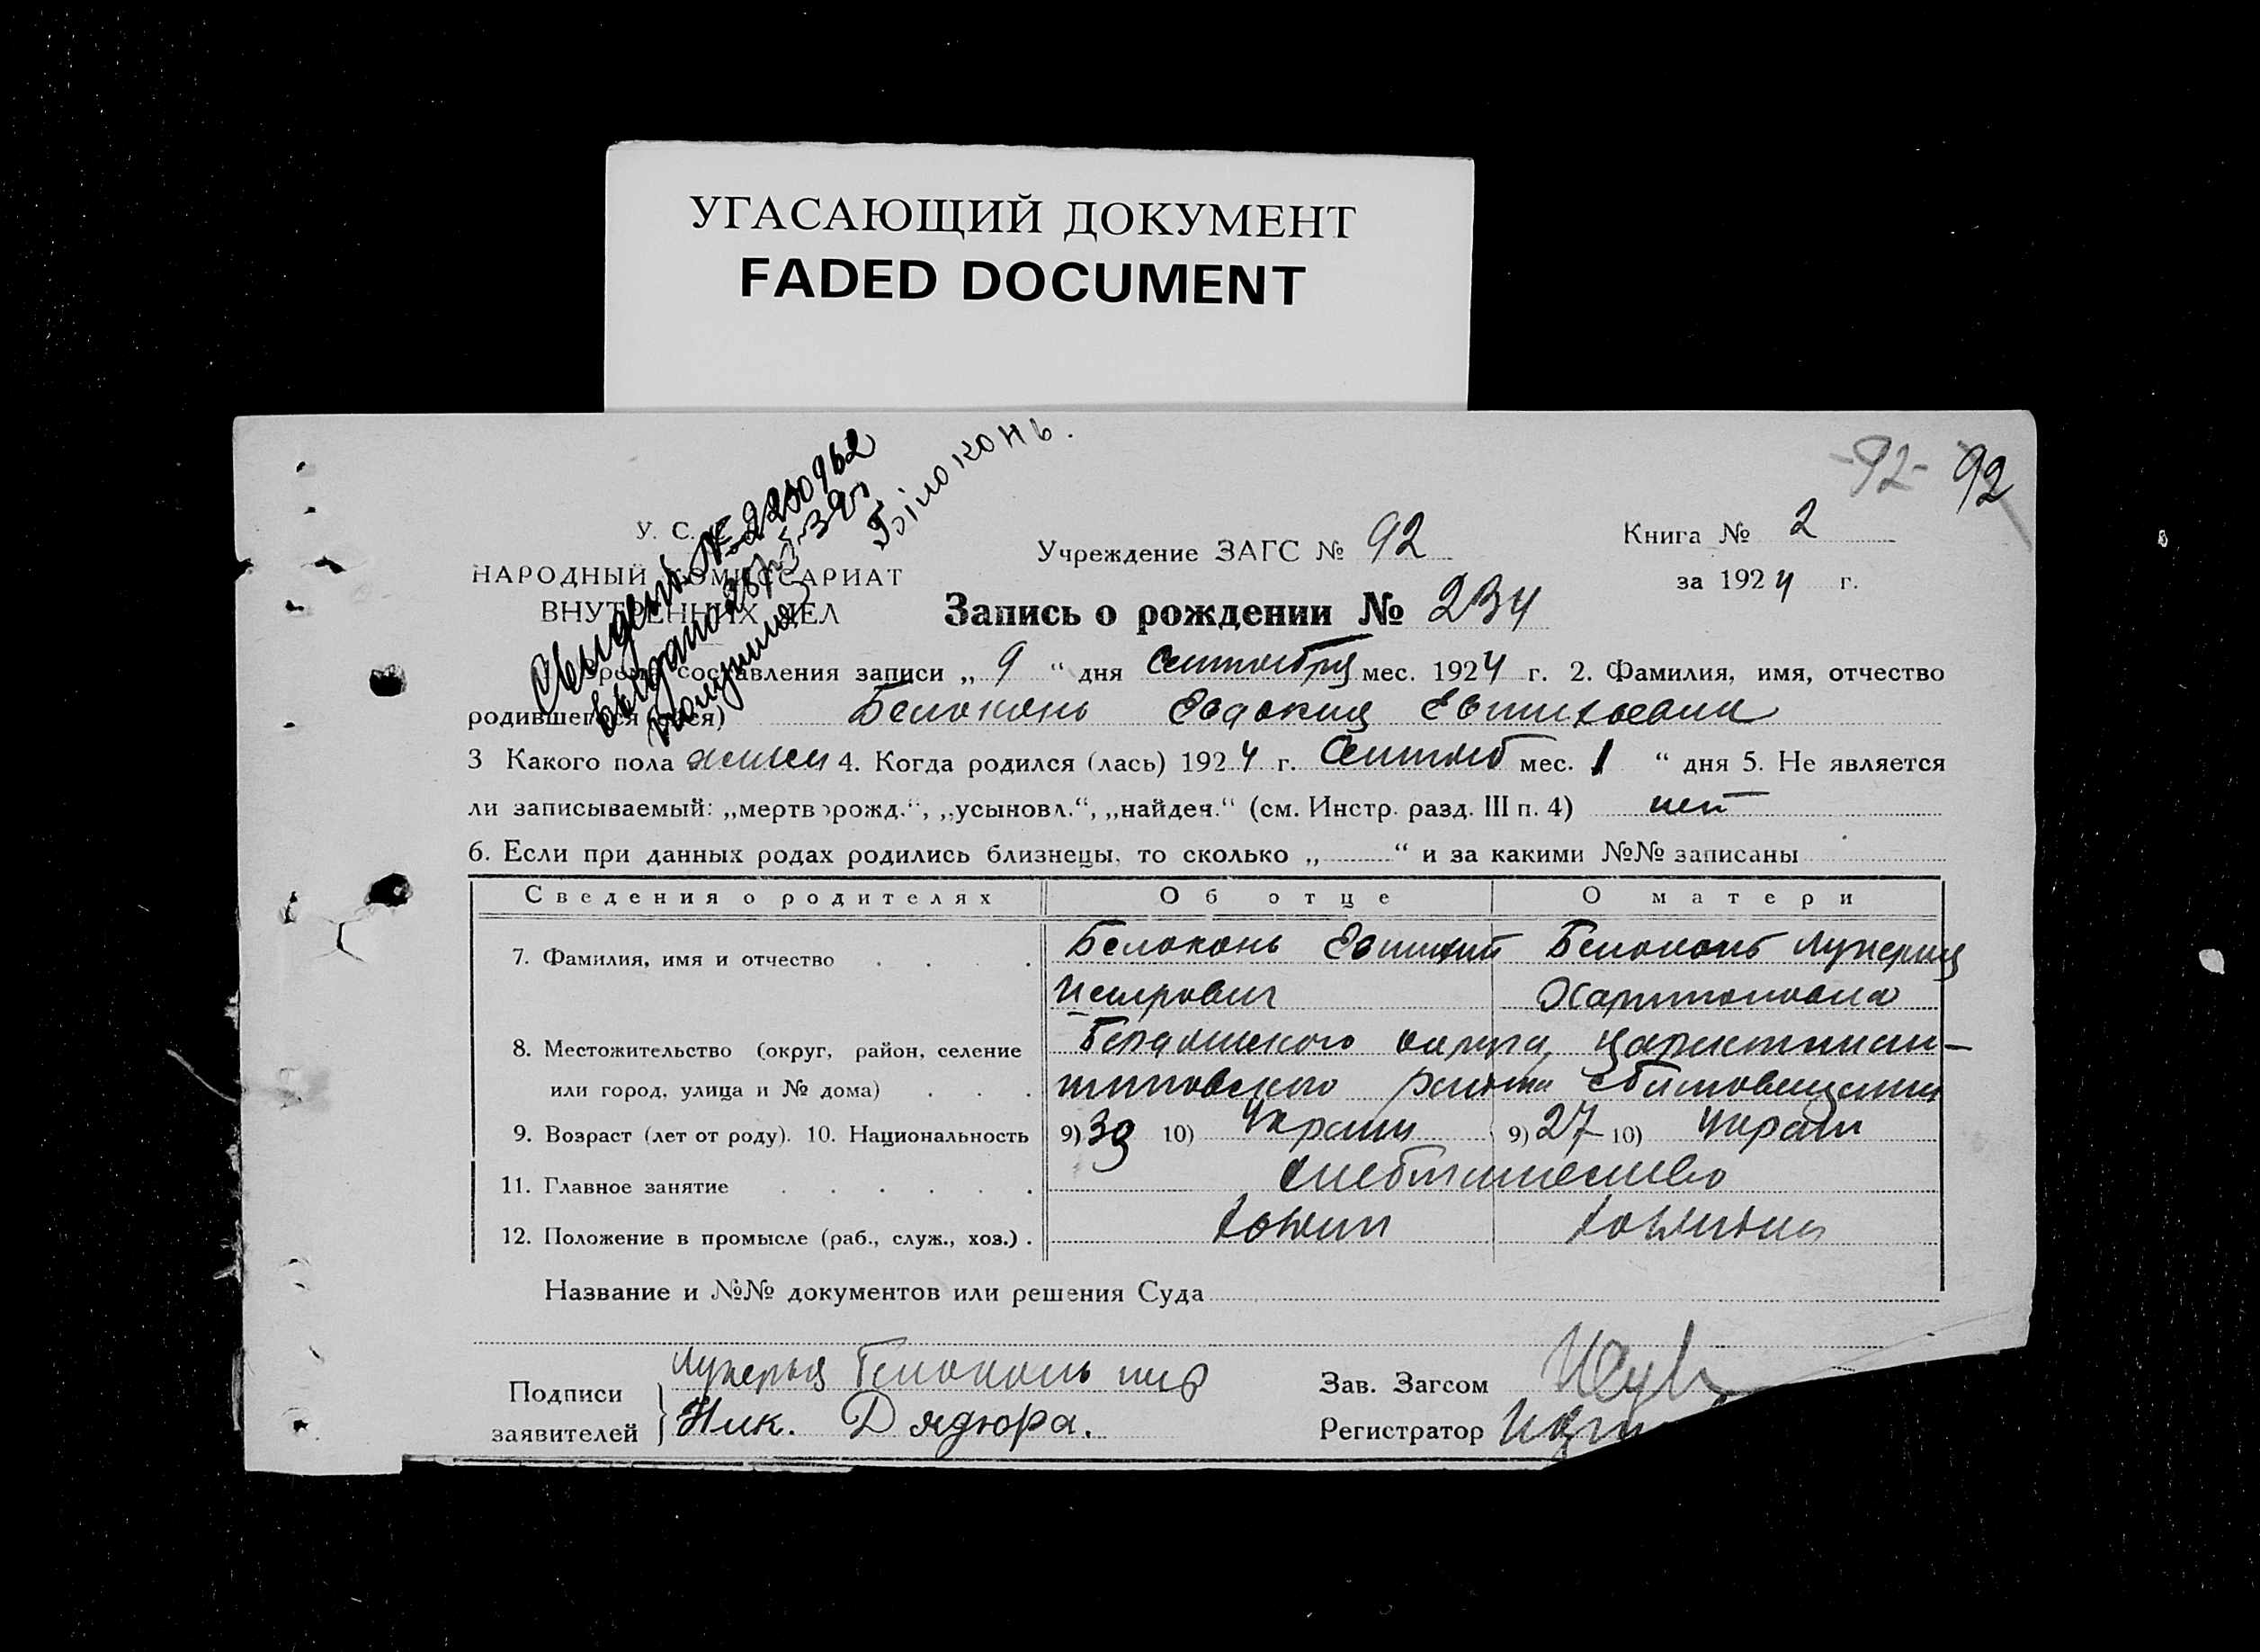 УГАСАЮЩИЙ ДОКУМЕНТ
FADED DOCUMENT
-92- 92
Свидет. № 2200962
выдано
Получила
Білоконь.
У. С.
НАРОДНЫЙ КОМИССАРИАТ
ВНУТРЕННИХ ДЕЛ
Учреждение ЗАГС № 92
Книга № 2
за 1924 г.
Запись о рождении № 234
Время составления записи „ 9 “ дня Сентября мес. 1924 г. 2. Фамилия, имя, отчество
родившегося (шейся) Белоконь Евдокия Евтихиевна
3 Какого пола женск 4. Когда родился (лась) 1924 г. Сентяб мес. 1 “ дня 5. Не является
ли записываемый: „мерт­ворожд.“, „усыновл.“, „найден.“ (см. Инстр. разд. III п. 4) нет
6. Если при данных родах родились близнецы, то сколько „ “ и за какими №№ записаны
Сведения о родителях Об отце О матери
7. Фамилия, имя и отчество Белоконь Евтихий Белоконь Лукерия
Петрович Харитоновна
8. Местожительство (округ, район, селение Бердянского округа, Цареконстан-
или город, улица и № дома) тиновского района
9. Возраст (лет от роду). 10. Национальность 9) 39 10) Украин 9) 27 10) Украин
11. Главное занятие хлебопашество
12. Положение в промысле (раб., служ., хоз.) хозяин хозяйка
Название и №№ документов или решения Суда
Подписи Лукерья Белоконь
заявителей Ник. Дядюра.
Зав. Загсом
Регистратор